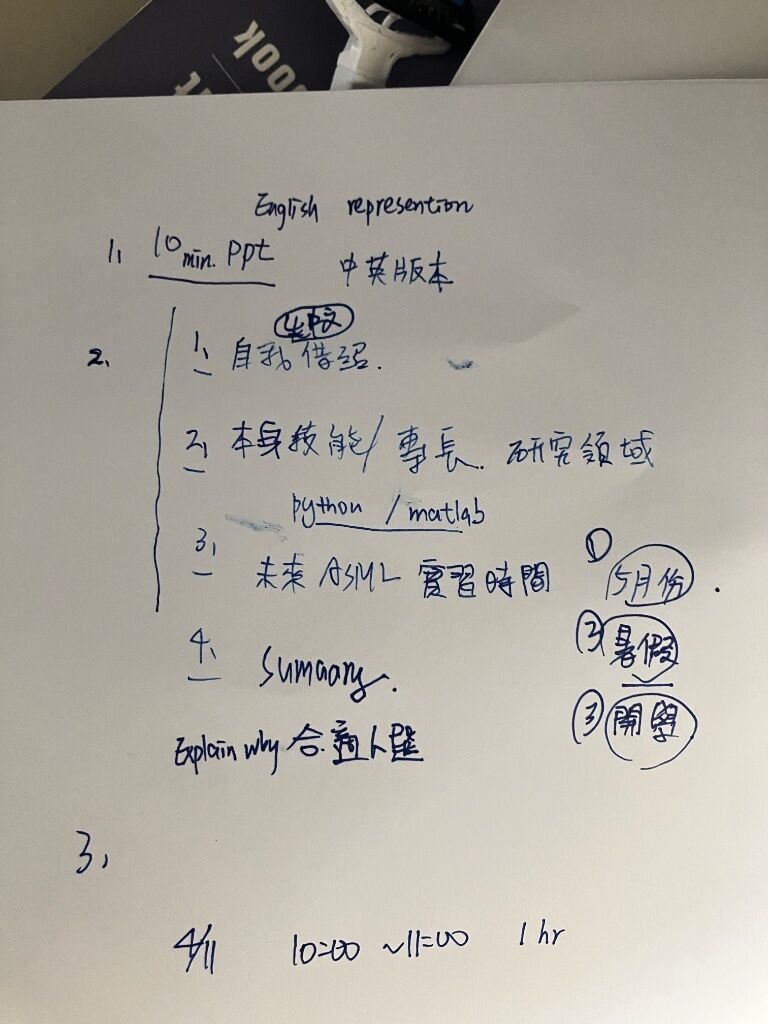 book
English represention
1. 10 min. ppt 中英版本
先中文
2. 1. 自我借紹.
2. 本身技能/專長. 研究領域
python /matlab
3. 未來 ASML 實習時間 ① 5月份.
② 暑假
4. Sumaary.
③ 開學
Explain why 合適人選
3.
4/11 10:00 ~11:00 1 hr